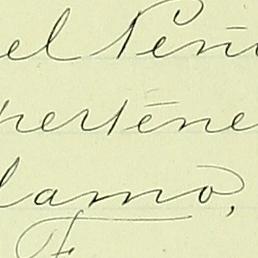 el Ten
pertene
lamo,
F